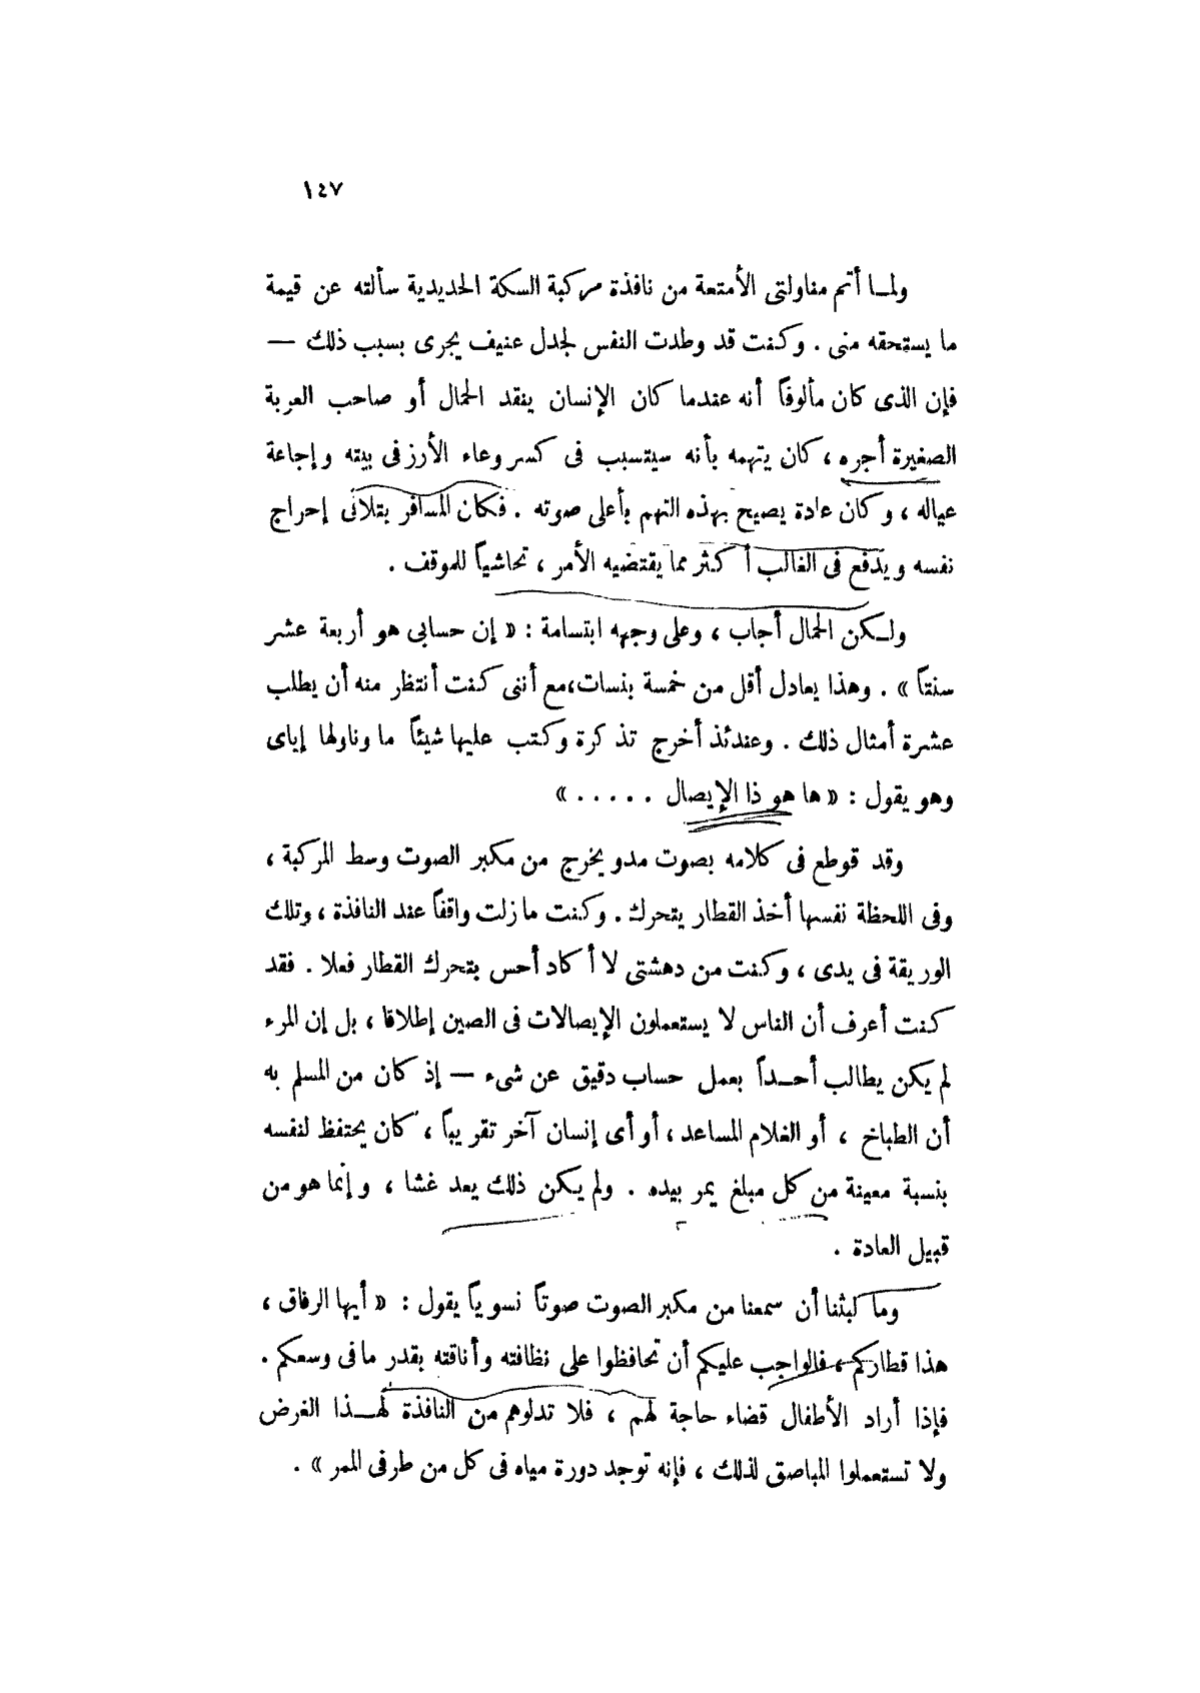 ١٤٧
ولمـا أتم مناولتى الأمتعة من نافذة مركبة السكة الحديدية سألته عن قيمة
ما يستحقه منى . وكنت قد وطدت النفس لجدل عنيف يجرى بسبب ذلك —
فإن الذى كان مألوفاً أنه عندما كان الإنسان ينقد الحمال أو صاحب العربة
الصغيرة أجره ، كان يتهمه بأنه سيتسبب فى كسر وعاء الأرز فى بيته وإجاعة
عياله ، وكان عادة يصيح بهذه التهم بأعلى صوته . فكان المسافر يتلافى إحراج
نفسه ويدفع فى الغالب أكثر مما يقتضيه الأمر ، تحاشياً للموقف .
ولـكن الحمال أجاب ، وعلى وجهه ابتسامة : « إن حسابى هو أربعة عشر
سنتاً » . وهذا يعادل أقل من خمسة بنسات، مع أننى كنت أنتظر منه أن يطلب
عشرة أمثال ذلك . وعندئذ أخرج تذكرة وكتب عليها شيئاً ما وناولها إياى
وهو يقول : « ها هو ذا الإيصال . . . . . »
وقد قوطع فى كلامه بصوت مدو يخرج من مكبر الصوت وسط المركبة ،
وفى اللحظة نفسها أخذ القطار يتحرك . وكنت ما زلت واقفاً عند النافذة ، وتلك
الوريقة فى يدى ، وكنت من دهشتى لا أكاد أحس بتحرك القطار فعلا . فقد
كنت أعرف أن الناس لا يستعملون الإيصالات فى الصين إطلاقا ، بل إن المرء
لم يكن يطالب أحـداً بعمل حساب دقيق عن شىء — إذ كان من المسلم به
أن الطباخ ، أو الغلام المساعد ، أو أى إنسان آخر تقريباً ، كان يحتفظ لنفسه
بنسبة معينة من كل مبلغ يمر بيده . ولم يكن ذلك يعد غشا ، وإنما هو من
قبيل العادة .
وما لبثنا أن سمعنا من مكبر الصوت صوتاً نسوياً يقول : « أيها الرفاق ،
هذا قطاركم ، فالواجب عليكم أن تحافظوا على نظافته وأناقته بقدر ما فى وسعكم .
فإذا أراد الأطفال قضاء حاجة لهم ، فلا تدلوهم من النافذة لهـذا الغرض
ولا تستعملوا المباصق لذلك ، فإنه توجد دورة مياه فى كل من طرفى الممر » .